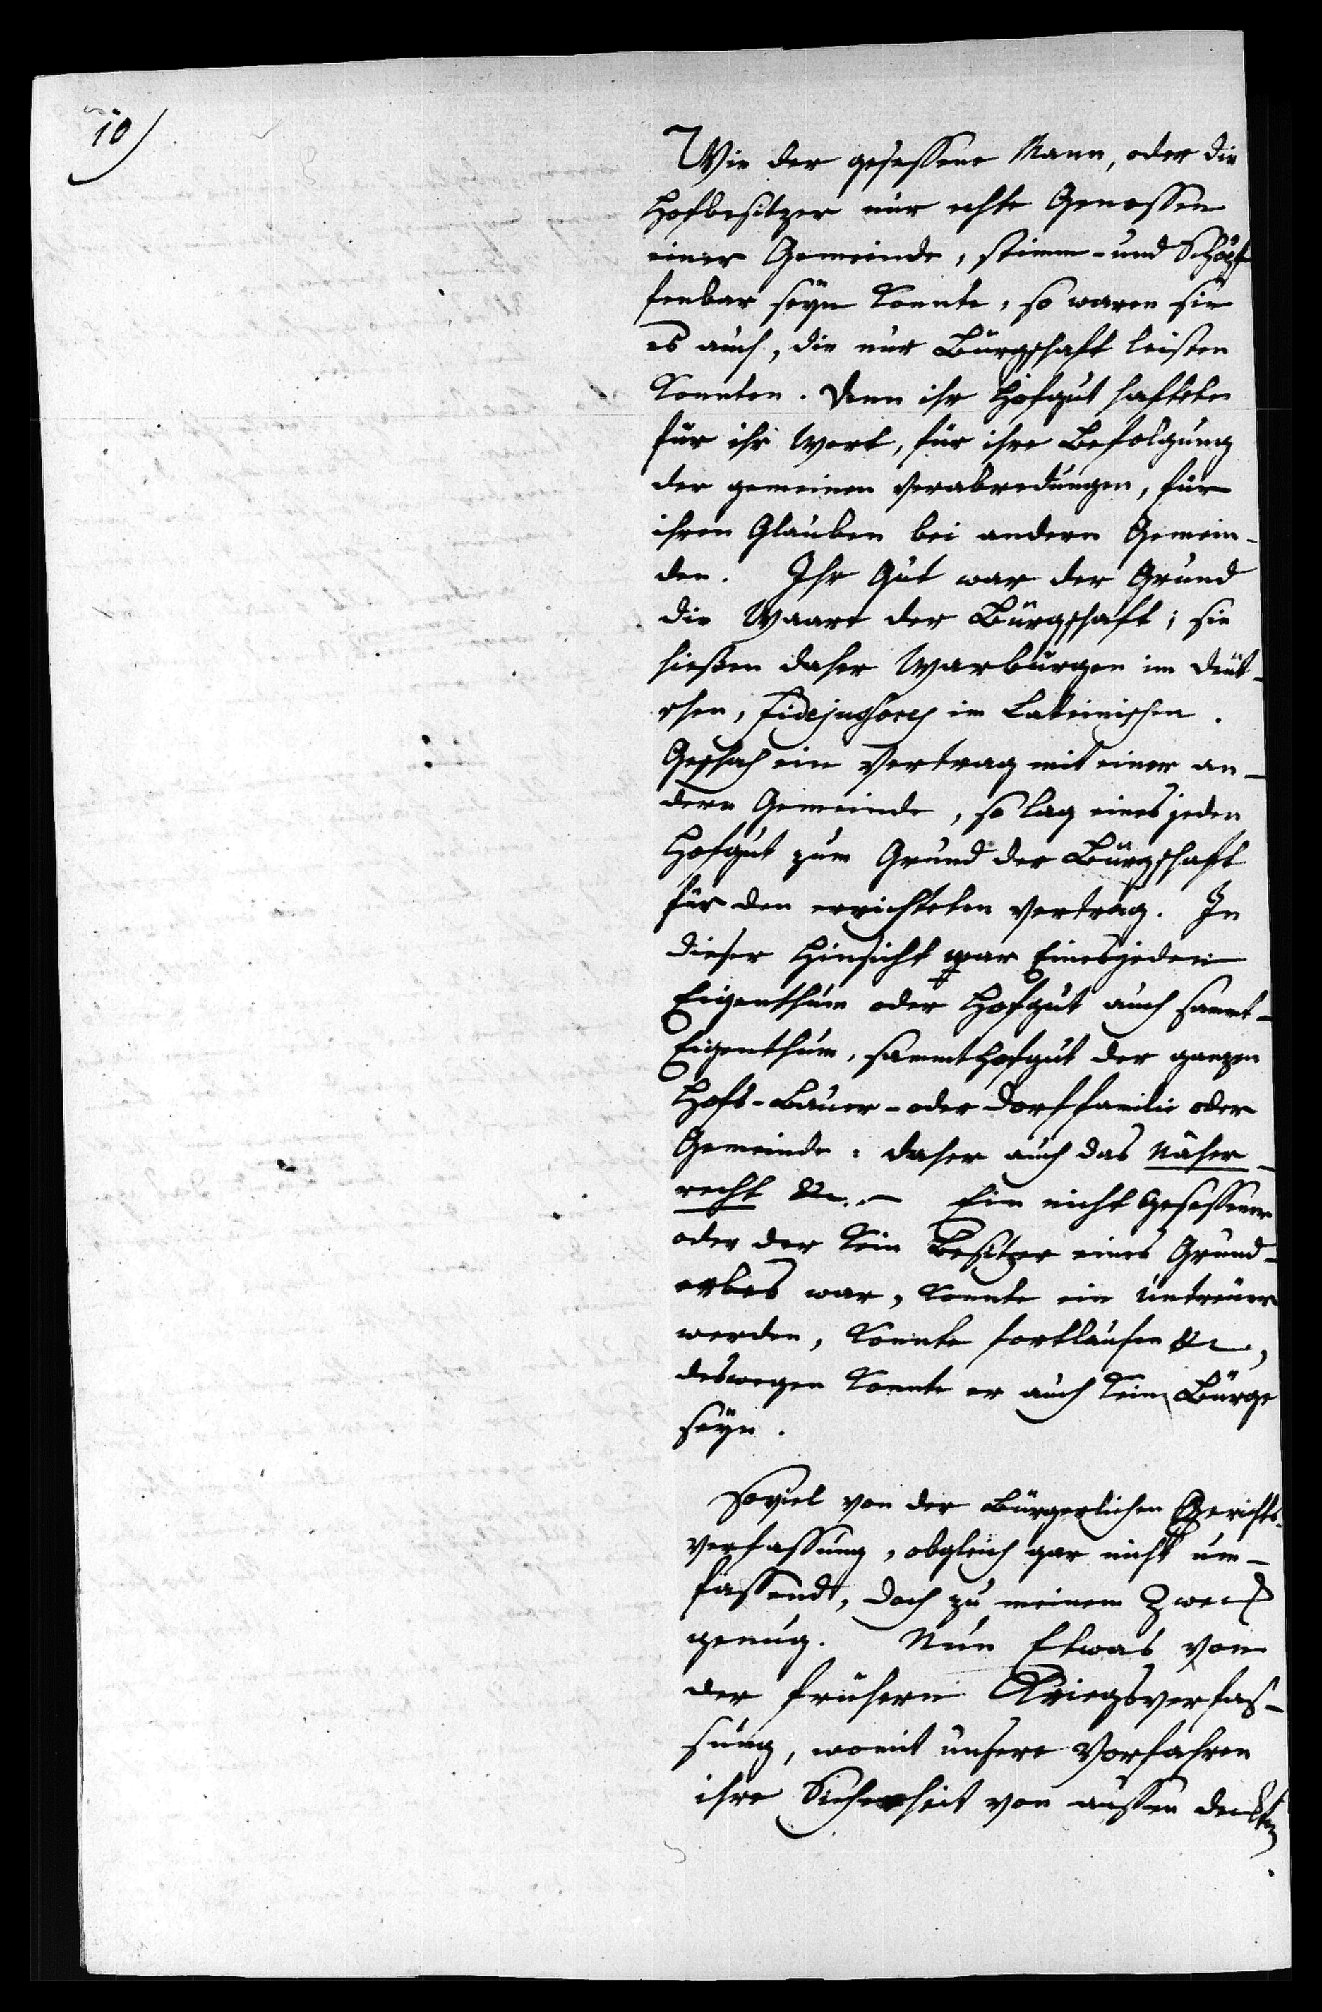 10)
Wie der gesessene Mann, oder die
Hofbesitzer nur echte Genossen
einer Gemeinde, stimm- und Schöpf
fenbar seyn konnte, so waren sie
es auch, die nur Bürgschaft leisten
konnten. Denn ihr Hofgut haftete
für ihr Wort, für ihre Befolgung
der gemeinen Verabredungen, für
ihren Glauben bei andern Gemein-
den. Ihr Gut war der Grund
die Waare der Bürgschaft; sie
hießen daher Warbürgen im Deut-
schen, fidejussores im Lateinischen.
Geschah ein Vertrag mit einer an-
dern Gemeinde, so lag eines jeden
Hofgut zum Grund der Bürgschaft
für den errichteten Vertrag. In
dieser Hinsicht war Einesjeden
Eigenthum oder Hofgut auch samt-
Eigenthum, sammthofgut der ganzen
Hofs-Bauer-oder Dorffamilie oder
Gemeinde: daher auch das Näher-
recht &c. - Ein nicht Gesessener
oder der kein Besitzer eines Grund-
erbes war, konnte ein untreuer
werden, konnte fortlaufen &c,
deswegen konnte er auch kein Bürge
seyn.
Soviel von der Bürgerlichen Gerichts-
verfassung, obgleich gar nicht um-
fassend, doch zu meinem Zweck
genug. Nun Etwas von
der frühern Kriegsverfas-
sung, womit unsere Vorfahren
ihre Sicherheit von aussen deckten
.